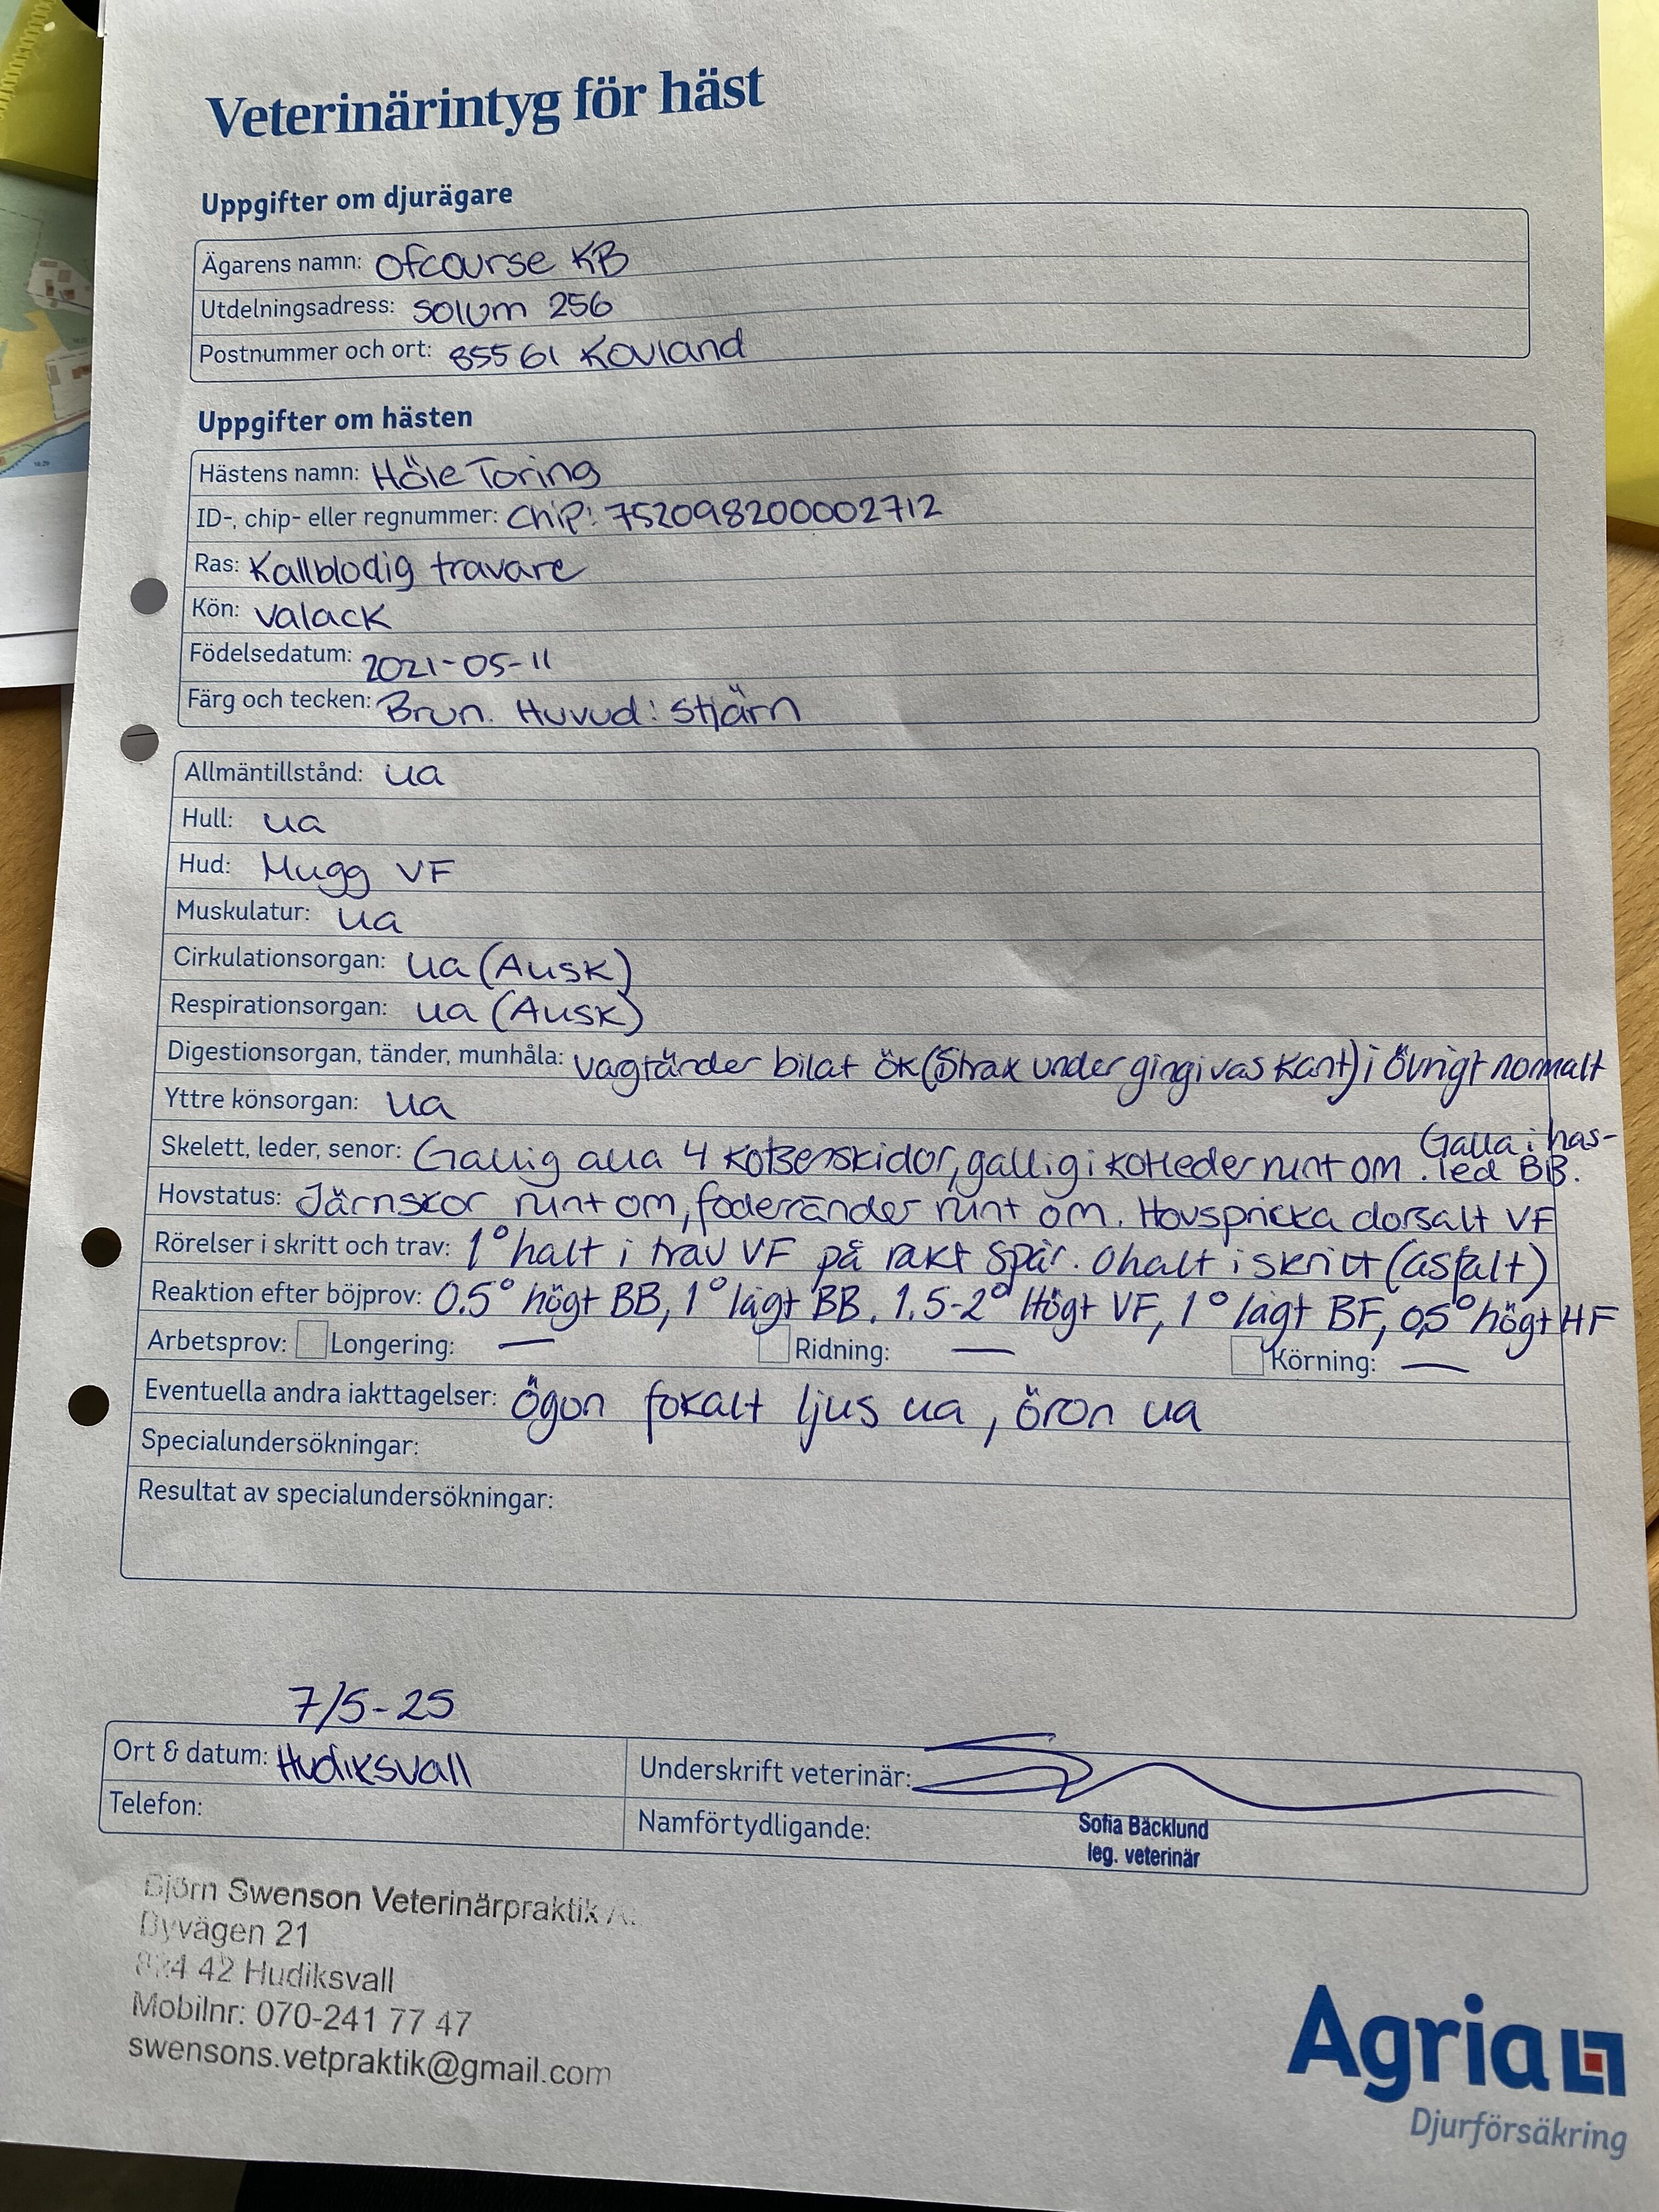 Veterinärintyg för häst
Uppgifter om djurägare
Ägarens namn: Ofcourse KB
Utdelningsadress: Solum 256
Postnummer och ort: 85561 Kovland
Uppgifter om hästen
Hästens namn: Höle Toring
ID-, chip- eller regnummer: Chip: 752098200002712
Ras: Kallblodig travare
Kön: Valack
Födelsedatum: 2021-05-11
Färg och tecken: Brun. Huvud: stjärn
Allmäntillstånd: ua
Hull: ua
Hud: Mugg VF
Muskulatur: ua
Cirkulationsorgan: ua (Ausk)
Respirationsorgan: ua (Ausk)
Digestionsorgan, tänder, munhåla: vagtänder bilat ök (Strax under gingivas kant) i övrigt normalt
Yttre könsorgan: ua
Skelett, leder, senor: Gallig alla 4 kotsenskidor, gallig i kotleder runt om. Galla i has-
led BB.
Hovstatus: Järnskor runt om, foderränder runt om. Hovspricka dorsalt VF
Rörelser i skritt och trav: 1° halt i trav VF på rakt spår. Ohalt i skritt (asfalt)
Reaktion efter böjprov: 0.5° högt BB, 1° lågt BB. 1.5-2° Högt VF, 1° lågt BF, 0,5° högt HF
Arbetsprov: Longering: — Ridning: — Körning: —
Eventuella andra iakttagelser: Ögon fokalt ljus ua, öron ua
Specialundersökningar:
Resultat av specialundersökningar:
7/5-25
Ort & datum: Hudiksvall
Underskrift veterinär:
Telefon:
Namförtydligande: Sofia Bäcklund
leg. veterinär
Björn Swenson Veterinärpraktik
Dyvägen 21
824 42 Hudiksvall
Mobilnr: 070-241 77 47
swensons.vetpraktik@gmail.com
Agria
Djurförsäkring